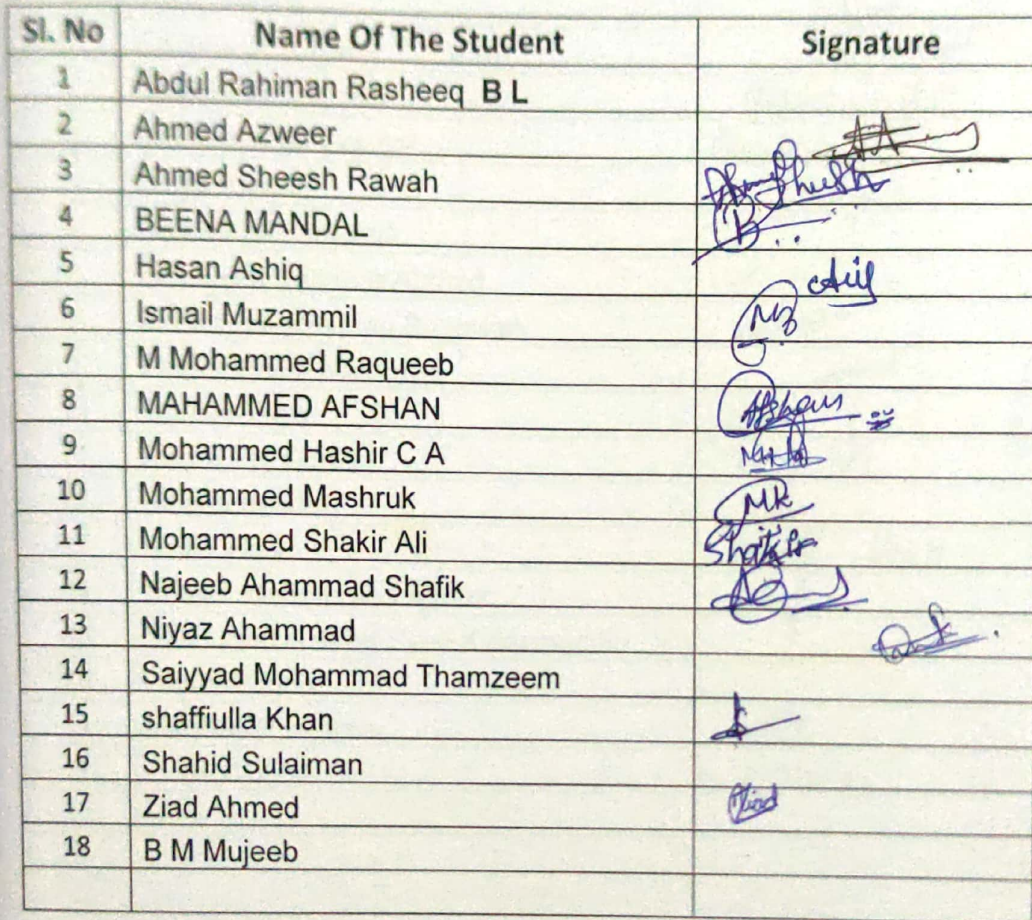 Sl. No Name Of The Student Signature
1 Abdul Rahiman Rasheeq B L
2 Ahmed Azweer
3 Ahmed Sheesh Rawah Ahmed Sheesh
4 BEENA MANDAL B
5 Hasan Ashiq
6 Ismail Muzammil MZ
7 M Mohammed Raqueeb
8 MAHAMMED AFSHAN Afshan
9 Mohammed Hashir C A
10 Mohammed Mashruk MK
11 Mohammed Shakir Ali Shakir
12 Najeeb Ahammad Shafik
13 Niyaz Ahammad
14 Saiyyad Mohammad Thamzeem
15 shaffiulla Khan
16 Shahid Sulaiman
17 Ziad Ahmed Ziad
18 B M Mujeeb